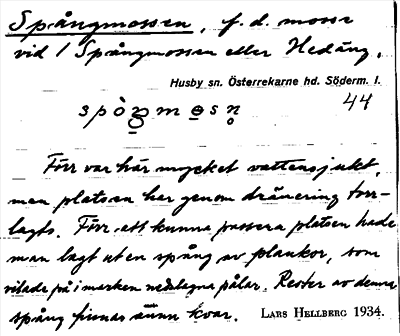 Spångmossen, f. d. mosse
vid l Spångmossen eller Hedäng.
Husby sn. Österrekarne hd. Söderm. l.
44
spò̀ŋmɵsn̥
Förr var här mycket vattensjukt,
men platsen har genom dränering torr-
lagts. Förr, att kunna passera platsen hade
man lagt ut en spång av plankor, som
vilade på i marken nedslagna pålar. Rester av denna
spång finnas ännu kvar. LARS HELLBERG 1934.